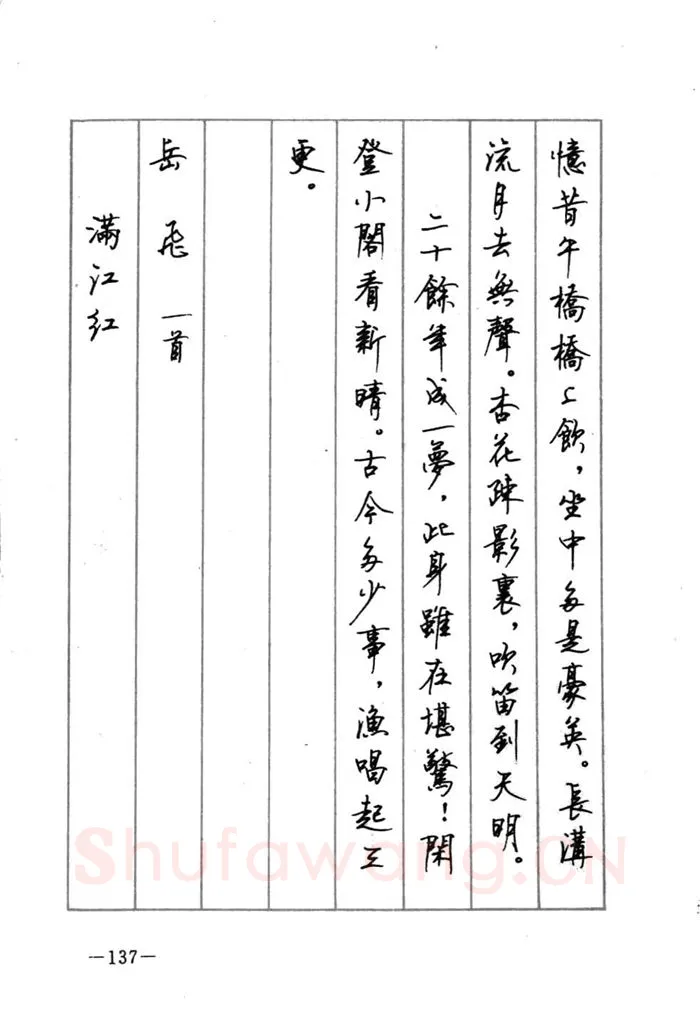 憶昔午橋橋上飲，坐中多是豪英。長溝
流月去無聲。杏花疎影裏，吹笛到天明。
二十餘年成一夢，此身雖在堪驚！閑
登小閣看新晴。古今多少事，漁唱起三
更。
岳飛 一首
滿江红
Shufawang.CN
—137—